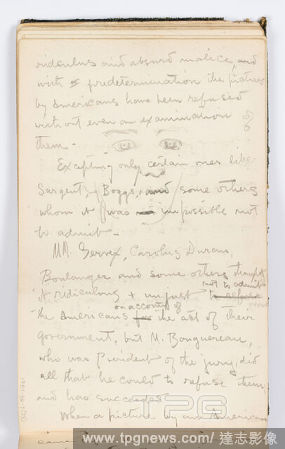 ridiculus and absurd malice, and
with predetermination the pictures
by Americans have been refused
without even an examination of
them -
Excepting only certain ones like
Sargent, Boggs, and some others
whom it was impossible not
to admit -
MM. Gervex, Carolus Duran,
Boulanger and some others thought
it ridiculous & unjust not to admit
on account of
the Americans for the act of their
government, but M. Bouguereau,
who was President of the jury, did
all that he could to refuse them
and has succeeded
When a picture by an American
PG
www.tpgnews.com / 達志影像